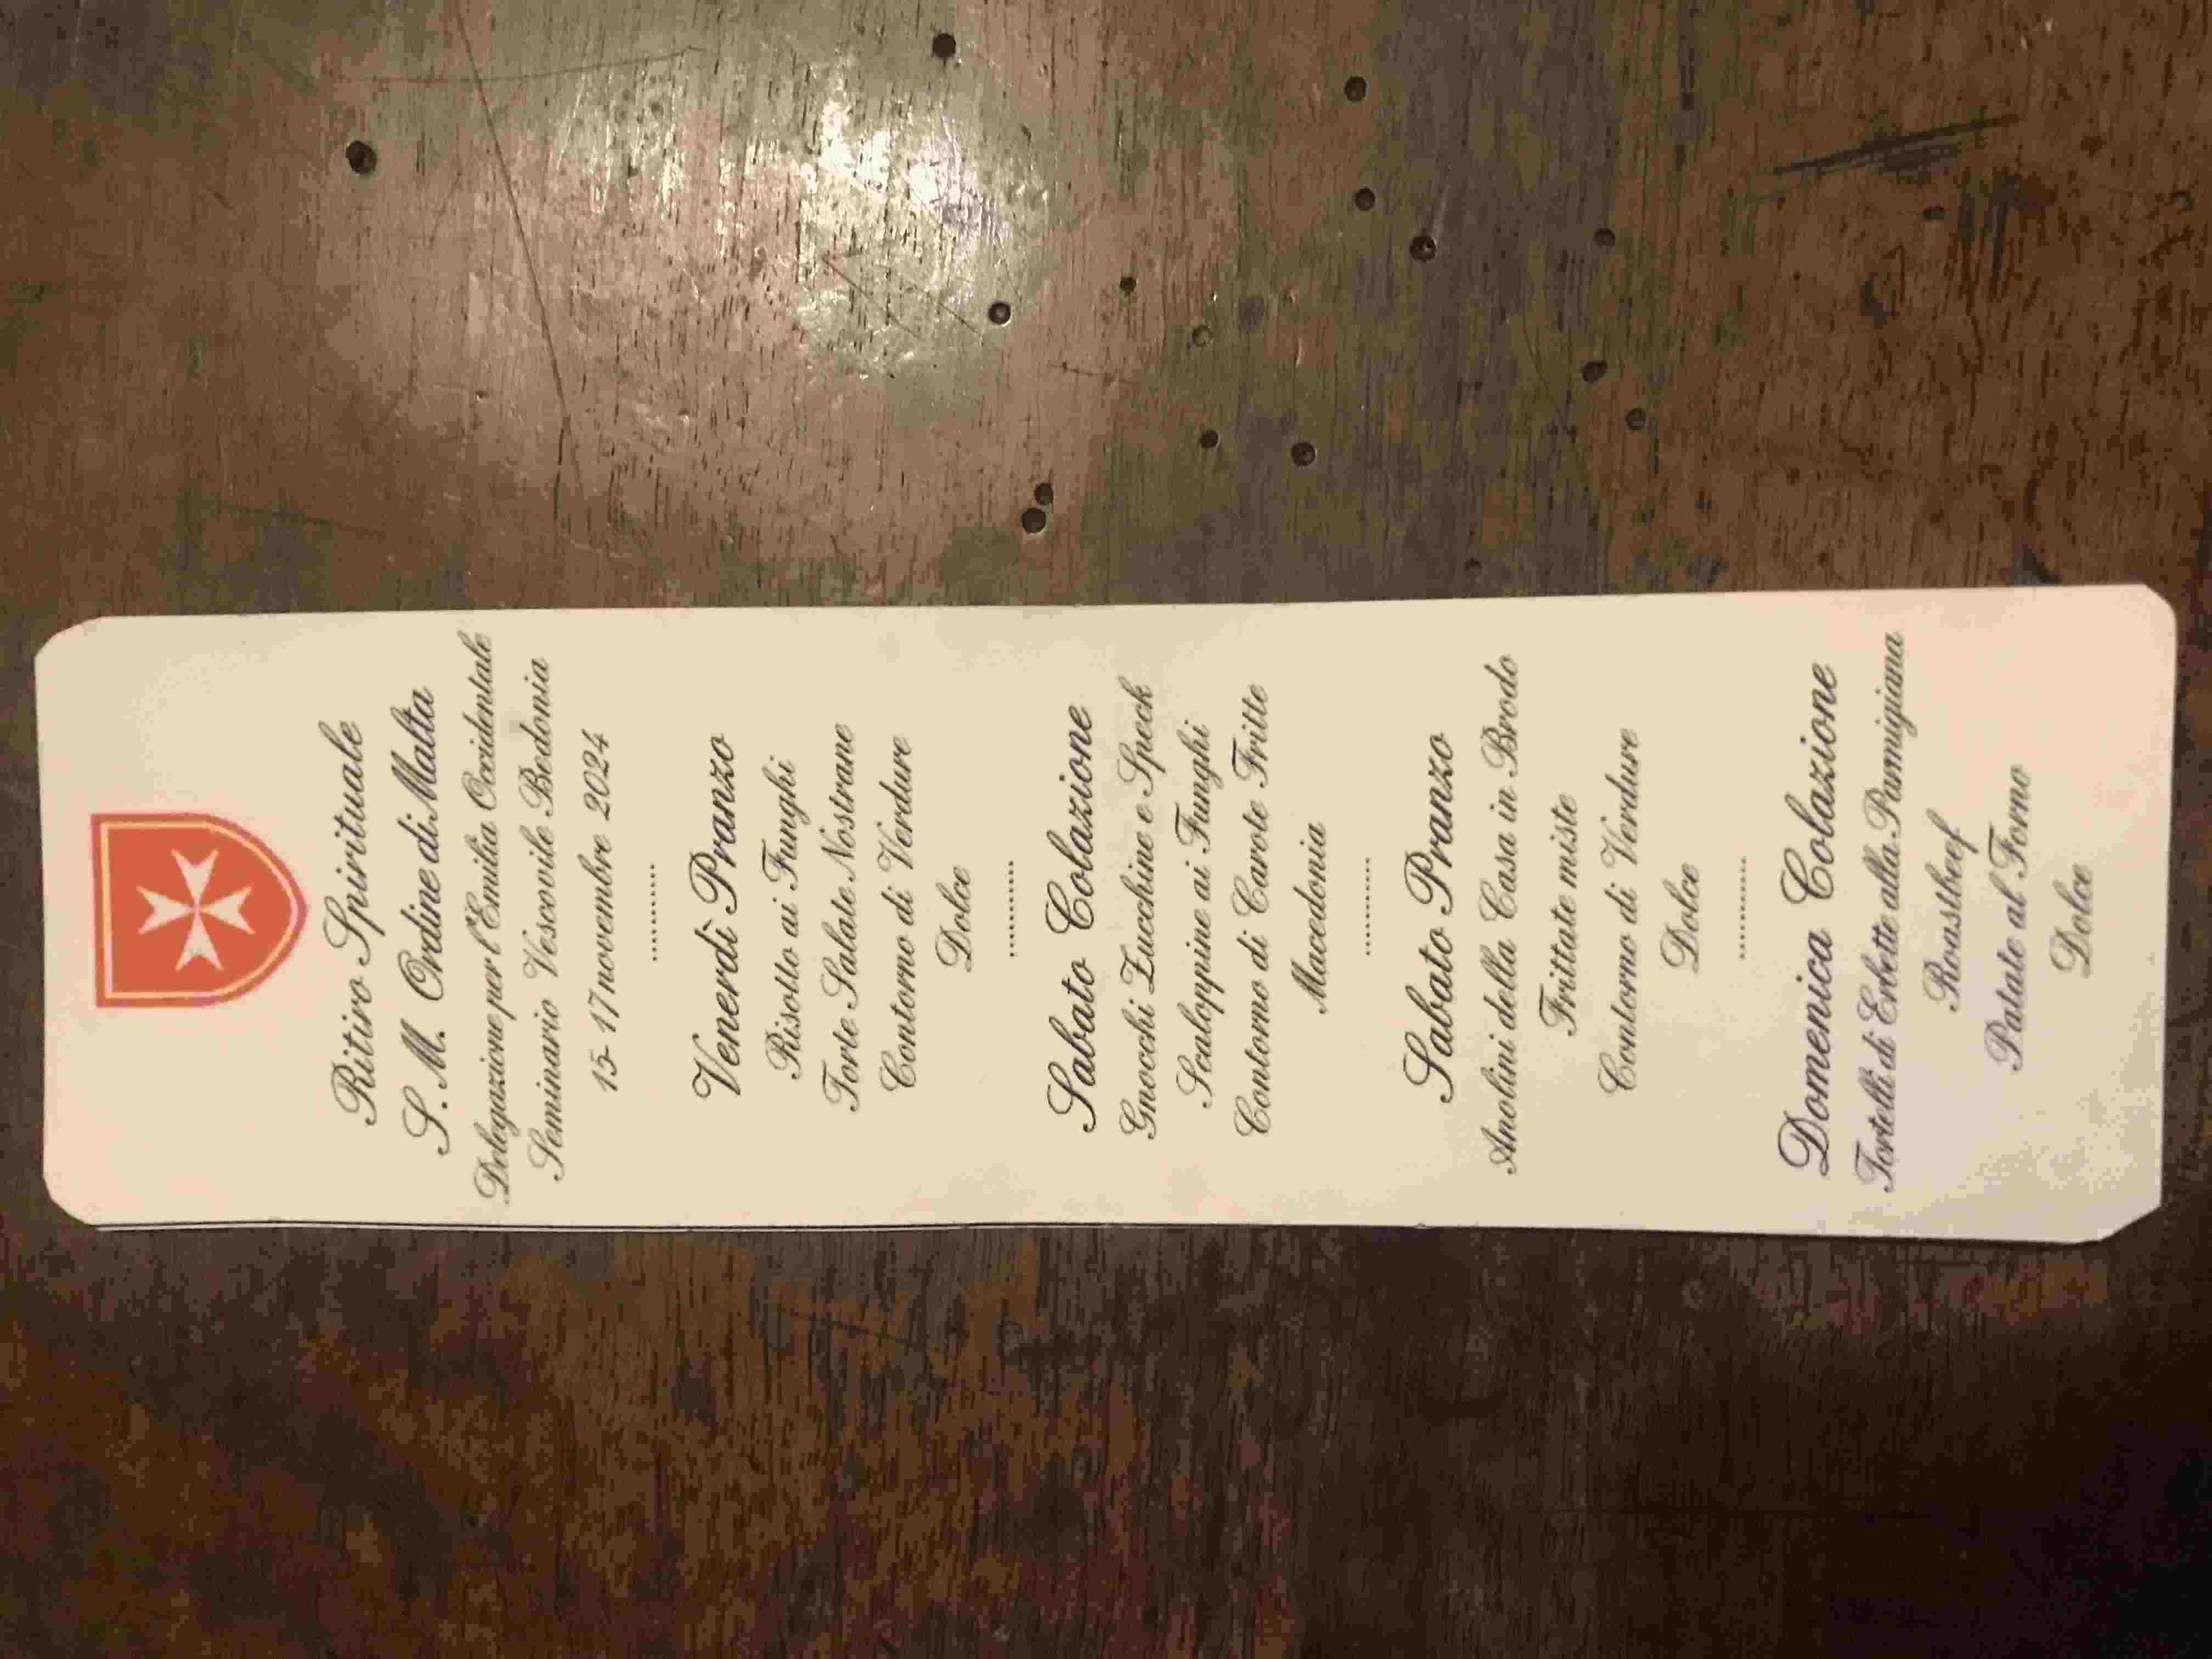 Ritiro Spirituale
S. M. Ordine di Malta
Delegazione per l'Emilia Occidentale
Seminario Vescovile Bedonia
15-17 novembre 2024
..........
Venerdì Pranzo
Risotto ai Funghi
Torte Salate Nostrane
Contorno di Verdure
Dolce
..........
Sabato Colazione
Gnocchi Zucchine e Speck
Scaloppine ai Funghi
Contorno di Carote Fritte
Macedonia
..........
Sabato Pranzo
Anolini della Casa in Brodo
Frittate miste
Contorno di Verdure
Dolce
..........
Domenica Colazione
Tortelli di Erbette alla Parmigiana
Roastbeef
Patate al Forno
Dolce